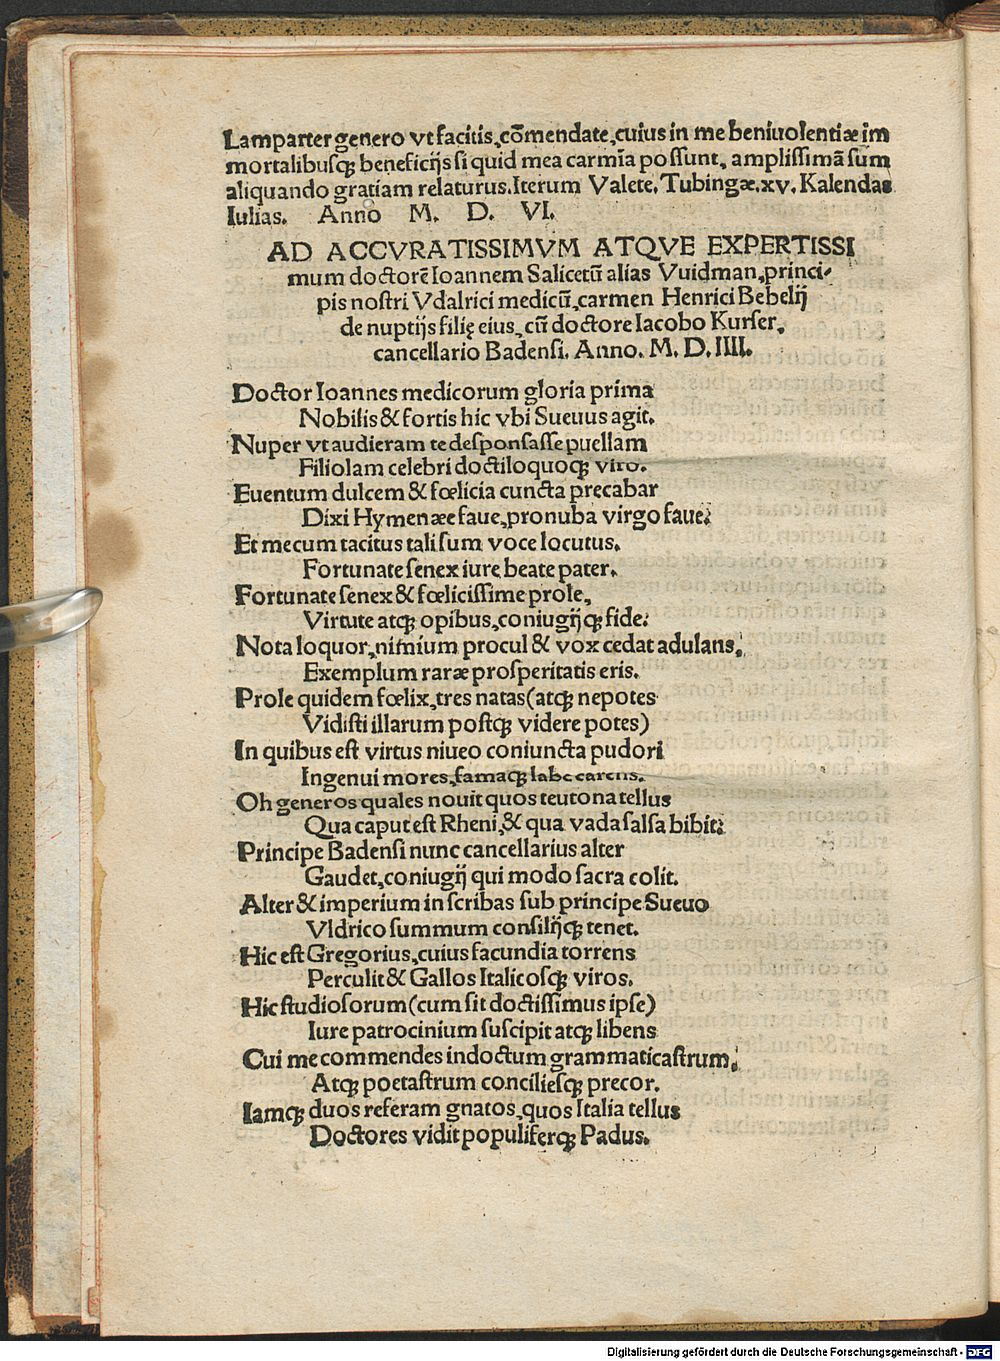 Lamparter genero vt facitis, cōmendate, cuius in me beniuolentiæ im
mortalibusqꝫ beneficijs si quid mea carmīa possunt, amplissimā sum
aliquando gratiam relaturus. Iterum Valete. Tubingæ. xv. Kalendas
Iulias. Anno M. D. VI.
AD ACCVRATISSIMVM ATQVE EXPERTISSI
mum doctorē Ioannem Salicetū alias Vuidman, princi-
pis nostri Vdalrici medicū, carmen Henrici Bebelij
de nuptijs filię eius, cū doctore Iacobo Kurser,
cancellario Badensi. Anno. M. D. IIII.
Doctor Ioannes medicorum gloria prima
Nobilis & fortis hic vbi Sueuus agit.
Nuper vt audieram te desponsasse puellam
Filiolam celebri doctiloquoqꝫ viro.
Euentum dulcem & fœlicia cuncta precabar
Dixi Hymenæe faue, pronuba virgo faue:
Et mecum tacitus tali sum voce locutus.
Fortunate senex iure beate pater.
Fortunate senex & fœlicissime prole,
Virtute atqꝫ opibus, coniugijqꝫ fide:
Nota loquor, nimium procul & vox cedat adulans,
Exemplum raræ prosperitatis eris.
Prole quidem fœlix, tres natas (atqꝫ nepotes
Vidisti illarum postqꝫ videre potes)
In quibus est virtus niueo coniuncta pudori
Ingenui mores, famaqꝫ labe carens.
Oh generos quales nouit quos teutona tellus
Qua caput est Rheni, & qua vada salsa bibit:
Principe Badensi nunc cancellarius alter
Gaudet, coniugij qui modo sacra colit.
Alter & imperium in scribas sub principe Sueuo
Vldrico summum consilijqꝫ tenet.
Hic est Gregorius, cuius facundia torrens
Perculit & Gallos Italicosqꝫ viros.
Hic studiosorum (cum sit doctissimus ipse)
Iure patrocinium suscipit atqꝫ libens
Cui me commendes indoctum grammaticastrum,
Atqꝫ poetastrum conciliesqꝫ precor.
Iamqꝫ duos referam gnatos, quos Italia tellus
Doctores vidit populiferqꝫ Padus.
Digitalisierung gefördert durch die Deutsche Forschungsgemeinschaft - DFG